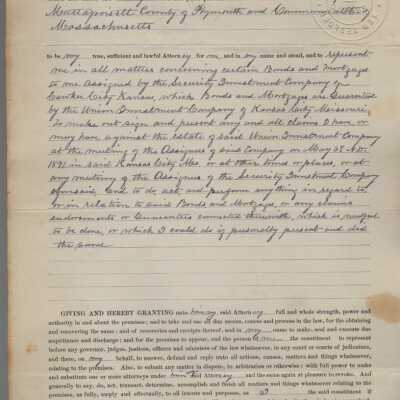 Mattapoisett County of Plymouth and Commonwealth of
Massachusetts
to be my true, sufficient and lawful Attorney for me, and in my name and stead, and to represent
me in all matters concerning certain Bonds and Mortgage
to me Assigned by the Security Investment Company of
Cawker City Kansas, which Bonds and Mortgage are Guaranteed
by the Union Investment Company of Kansas City Missouri.
To make out sign and present any and all claims I have or
may have against the Estate of said Union Investment Company
at the meeting of the Assignee of said Company on May
1891 in said Kansas City Mo, or at other times or places, or at
any meeting of the Assignee of the Security Investment Company
aforesaid, and to do act, and perform anything in regard to
or in relation to said Bonds and Mortgage, or any
endorsements or Guarantees connected therewith, which is needful
to be done, or which I could do if personally present and did
the same.
GIVING AND HEREBY GRANTING unto said Attorney full and whole strength, power and
authority in and about the premises; and to take and use all due means, course and process in the law, for the obtaining
and recovering the same; and of recoveries and receipts thereof, and in my name to make, seal and execute due
acquittance and discharge; and for the premises to appear, and the person of me the constituent to represent
before any governor, judges, justices, officers and ministers of the law whatsoever, in any court or courts of judicature,
and there, on my behalf, to answer, defend and reply unto all actions, causes, matters and things whatsoever,
relating to the premises. Also, to submit any matter in dispute, to arbitration or otherwise; with full power to make
and substitute one or more attorneys under said Attorney and the same again at pleasure to revoke. And
generally to say, do, act, transact, determine, accomplish and finish all matters and things whatsoever relating to the
premises, as fully, amply and effectually, to all intents and purposes, as I the said constituent